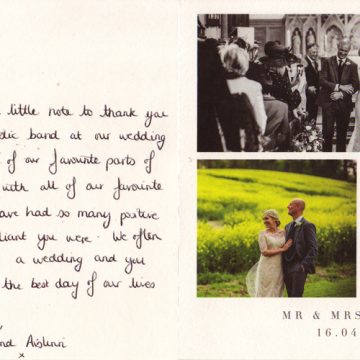 little note to thank you
band at our wedding
of our favourite parts of
with all of our favourite
have had so many positive
you were. We often
a wedding and you
the best day of our lives
and Aislinn
x
MR & MRS
16.04